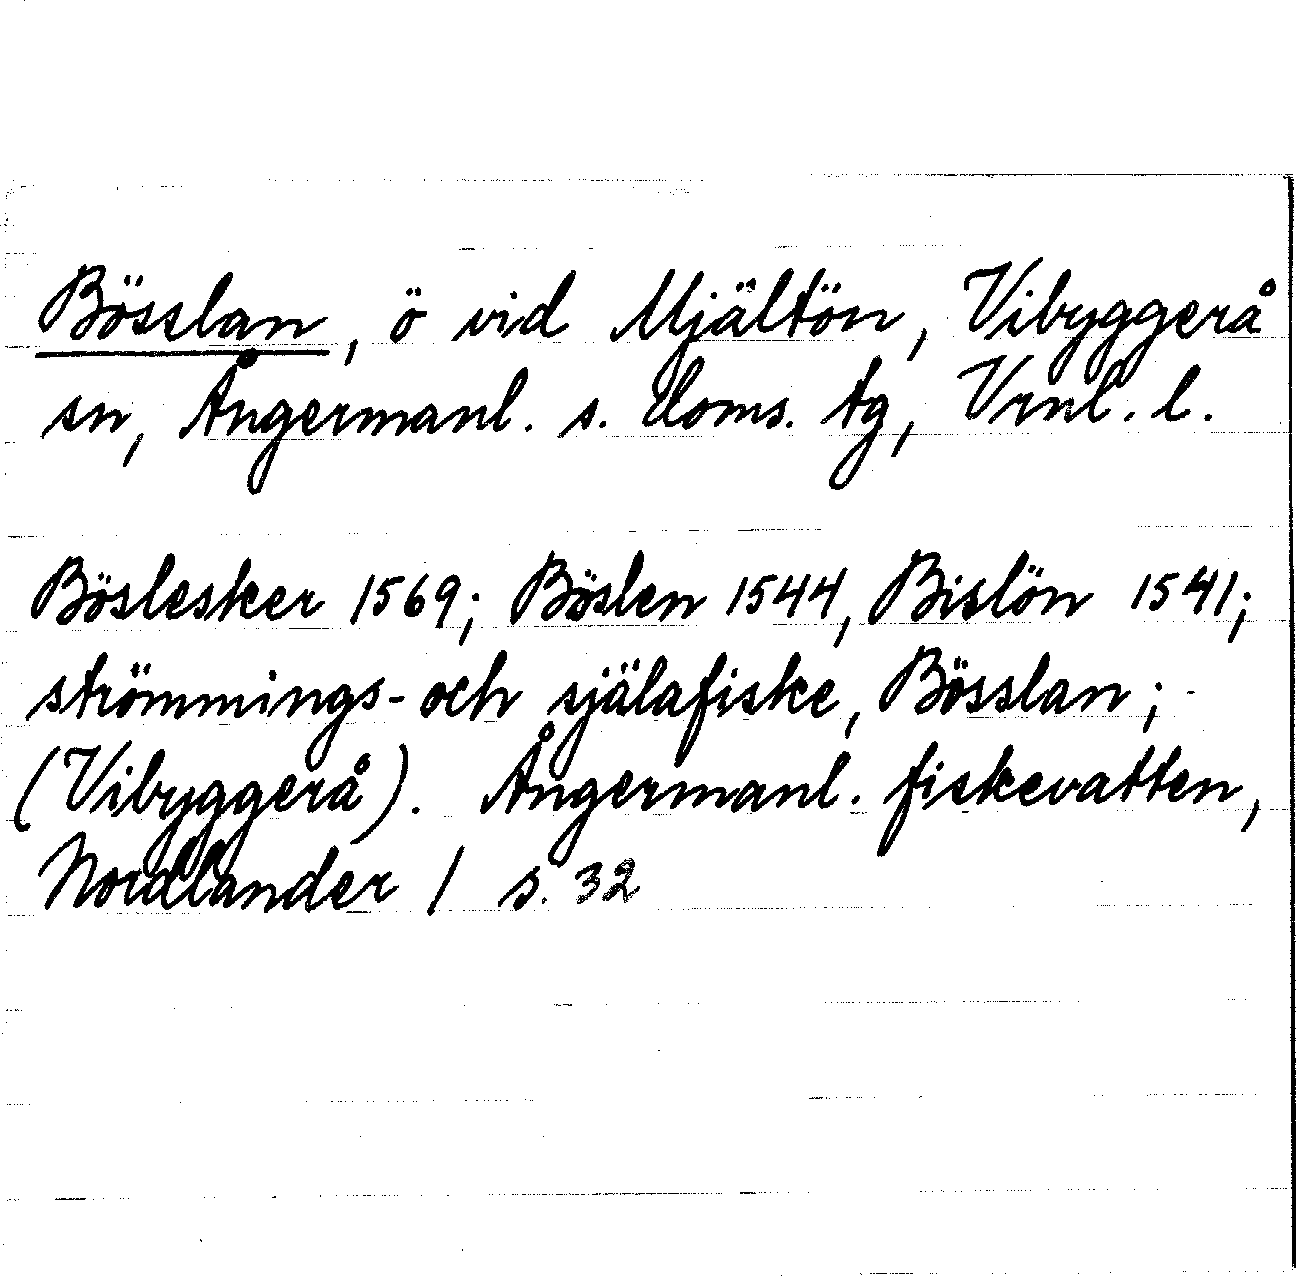 Bösslan, ö vid Mjältön, Vibyggerå
sn, Ångermanl. s. doms. tg, Vrnl. l.
Böslesker 1569; Böslen 1544, Bislön 1541;
strömmings- och själafiske, Bösslan; -
(Vibyggerå). Ångermanl. fiskevatten,
Nordlander / s. 32